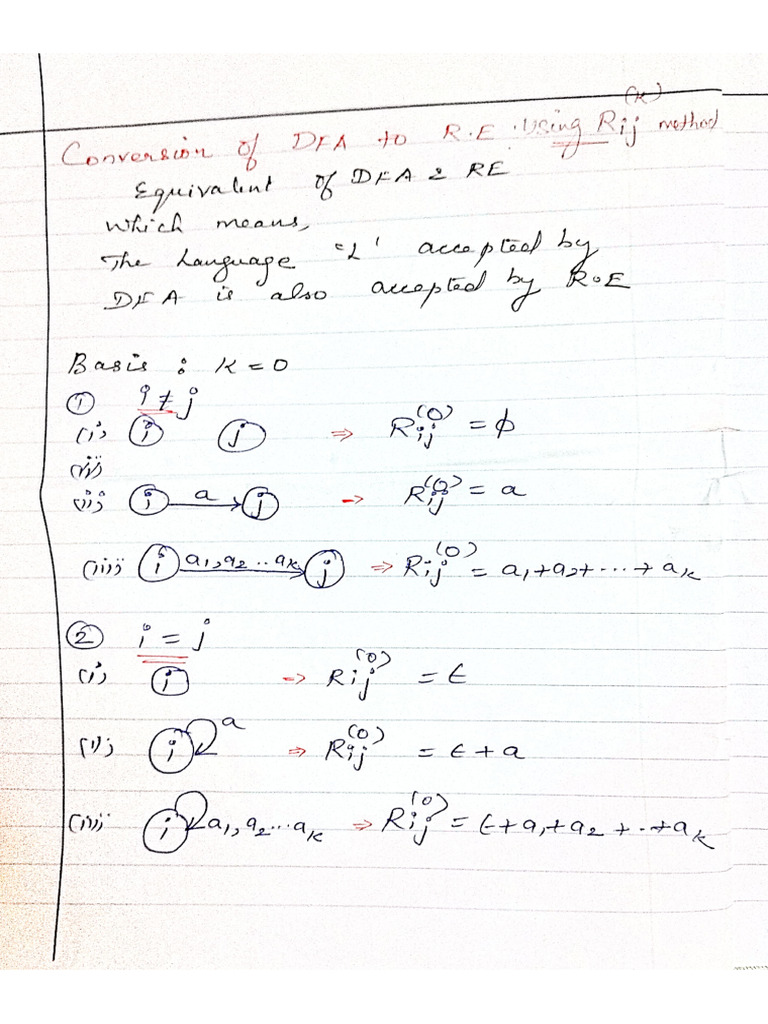 Conversion of DFA to R.E. Using Rij^(K) method
Equivalent of DFA & RE
Which means,
The Language "L" accepted by
DFA is also accepted by R.E
Basis : K = 0
① i ≠ j
(i) i j ⇒ Rij^(0) = ϕ
(ii)
(ii) i a j → Rij^(0) = a
(iii) i a1, a2 .. ak j ⇒ Rij^(0) = a1 + a2 + ... + ak
② i = j
(i) i → Rij^(0) = ϵ
(ii) i a ⇒ Rij^(0) = ϵ + a
(iii) i a1, a2 ... ak ⇒ Rij^(0) = ϵ + a1 + a2 + .. + ak